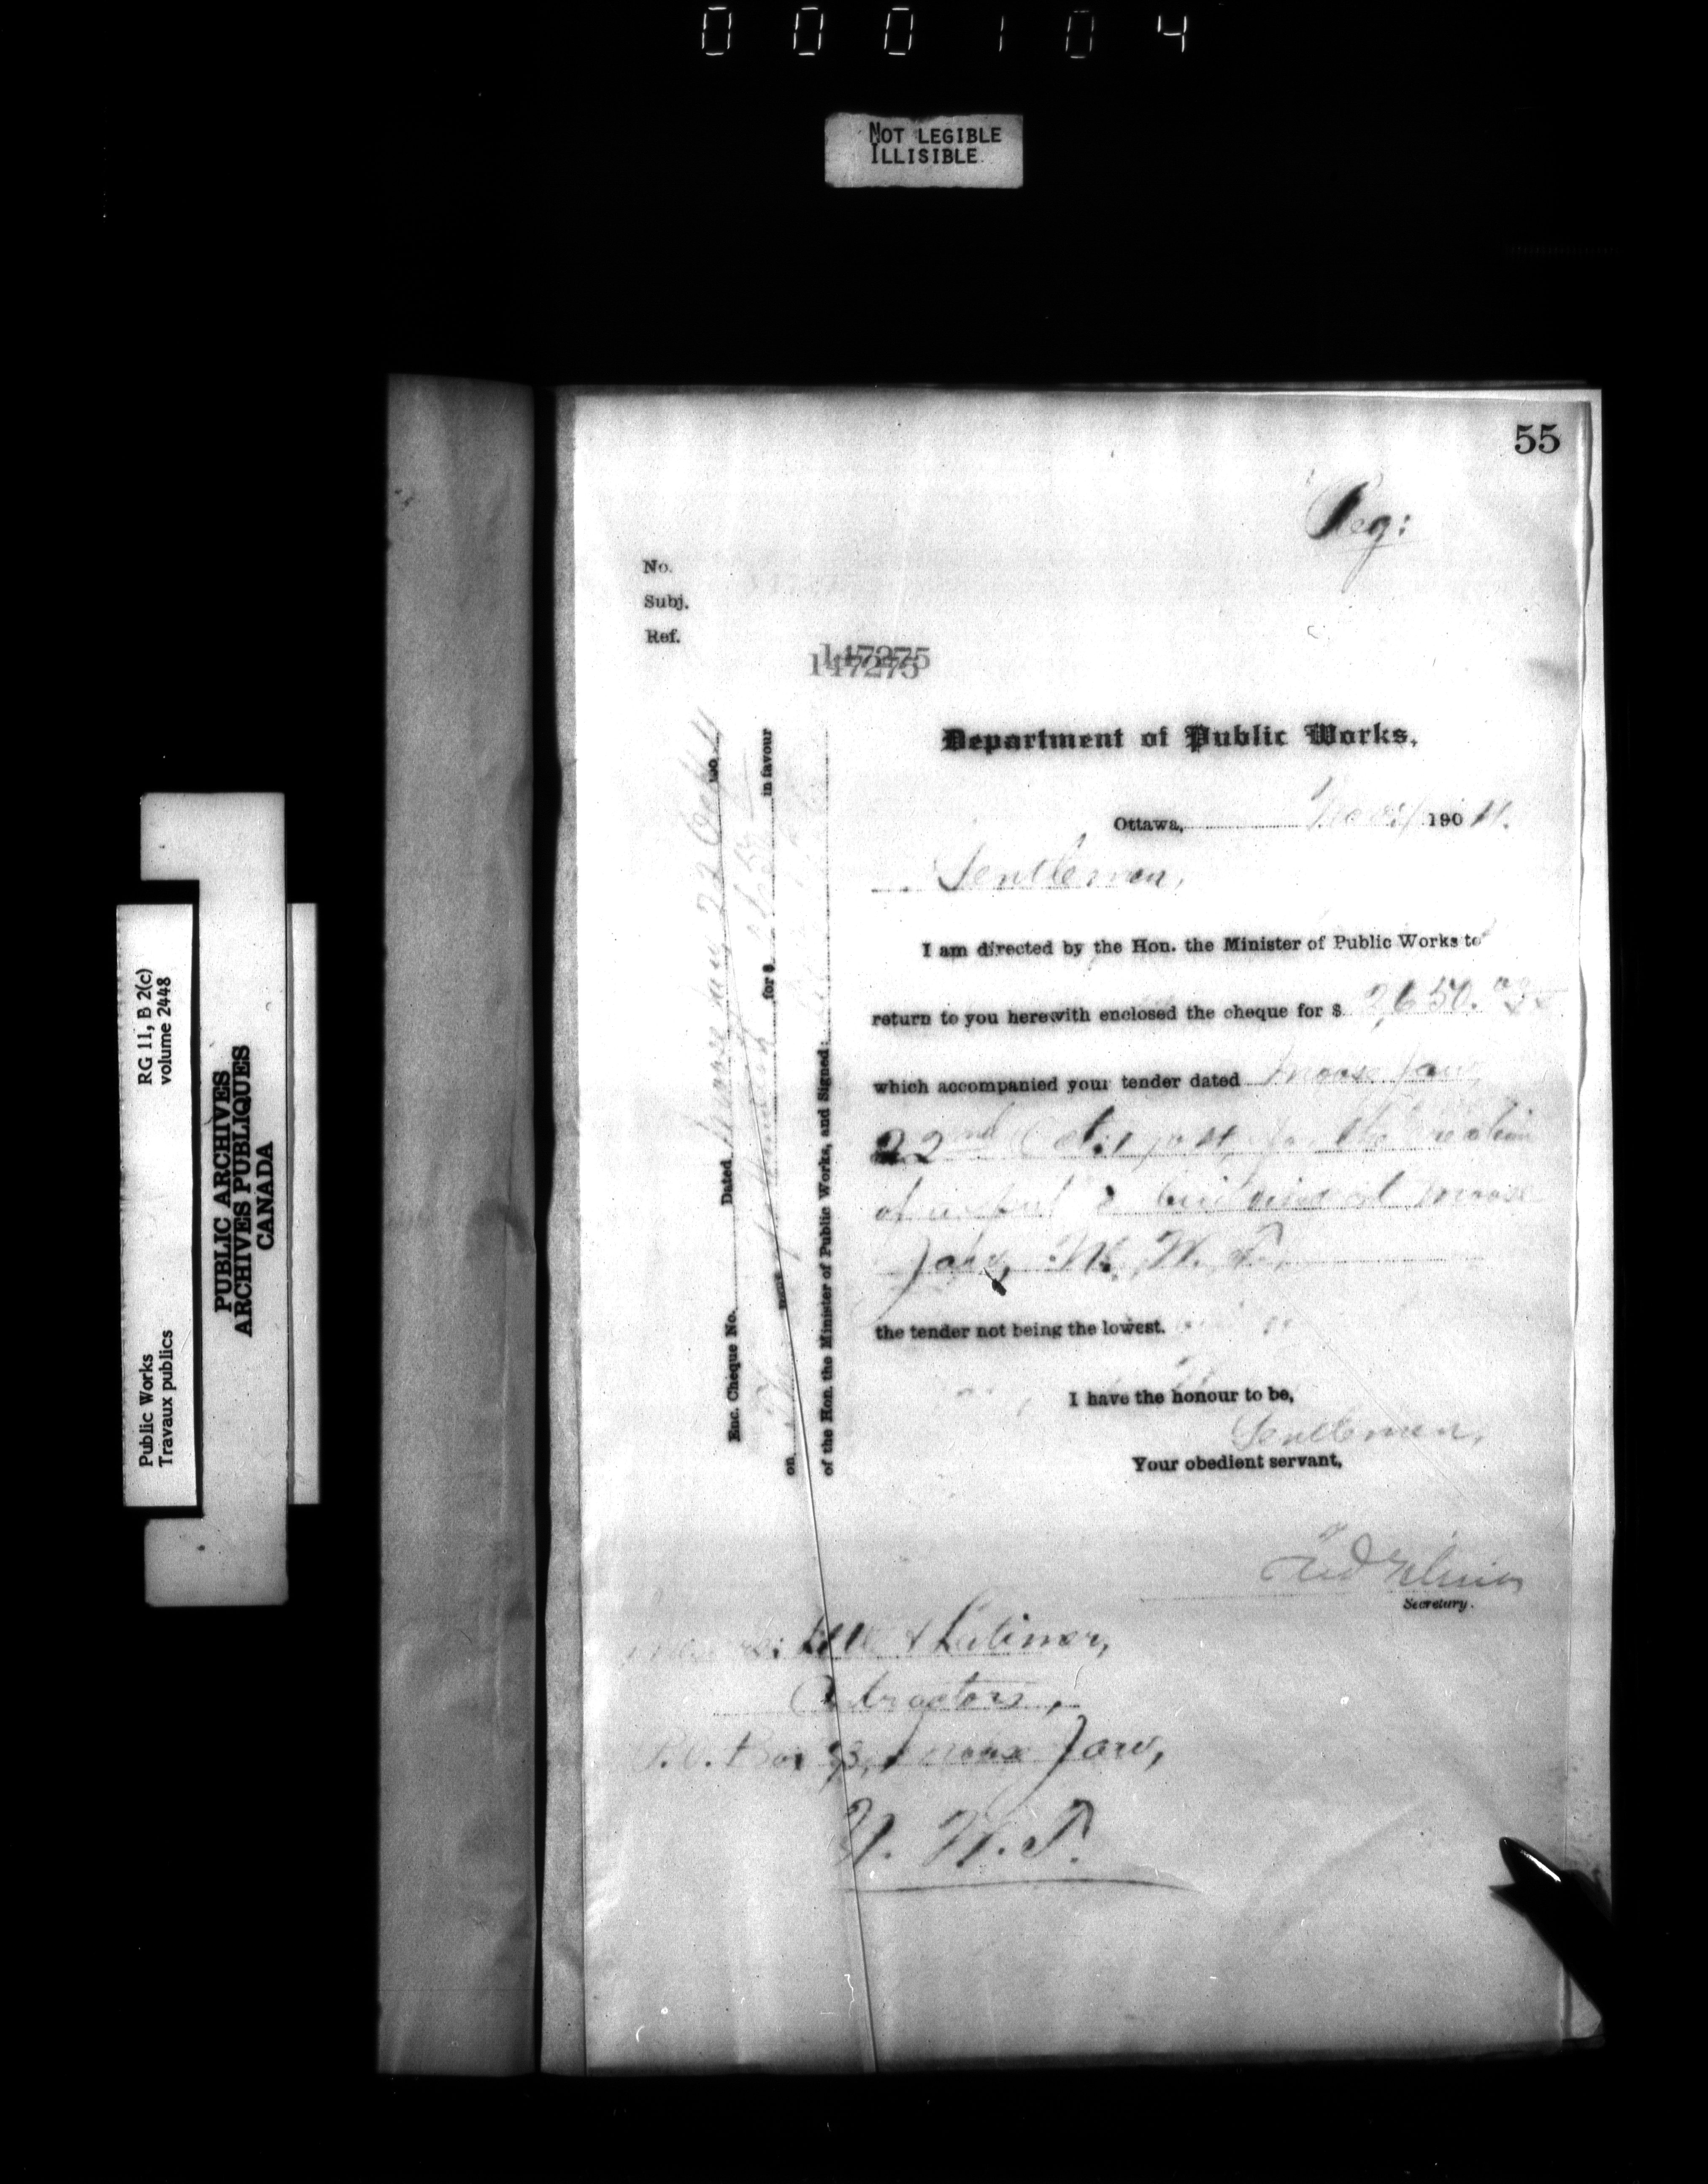 000104
NOT LEGIBLE
ILLISIBLE
Public Works
Travaux publics
RG 11, B 2(c)
volume 2448
PUBLIC ARCHIVES
ARCHIVES PUBLIQUES
CANADA
55
Reg:
No.
Subj.
Ref.
147275
147275
Department of Public Works.
Ottawa, 190
Gentlemen,
I am directed by the Hon. the Minister of Public Works to
return to you herewith enclosed the cheque for $ 2,650.
which accompanied your tender dated Moose Jaw
22nd Oct. the erection
of a building at Moose
Jaw, N. W. T.
the tender not being the lowest.
I have the honour to be,
Gentlemen,
Your obedient servant,
Secretary.
& Latimer,
Contractors,
P.O. Box Moose Jaw,
N. W. T.
Enc. Cheque No. Dated Moose Jaw, 22 Oct 190
on for $ in favour
of the Hon. the Minister of Public Works, and Signed: